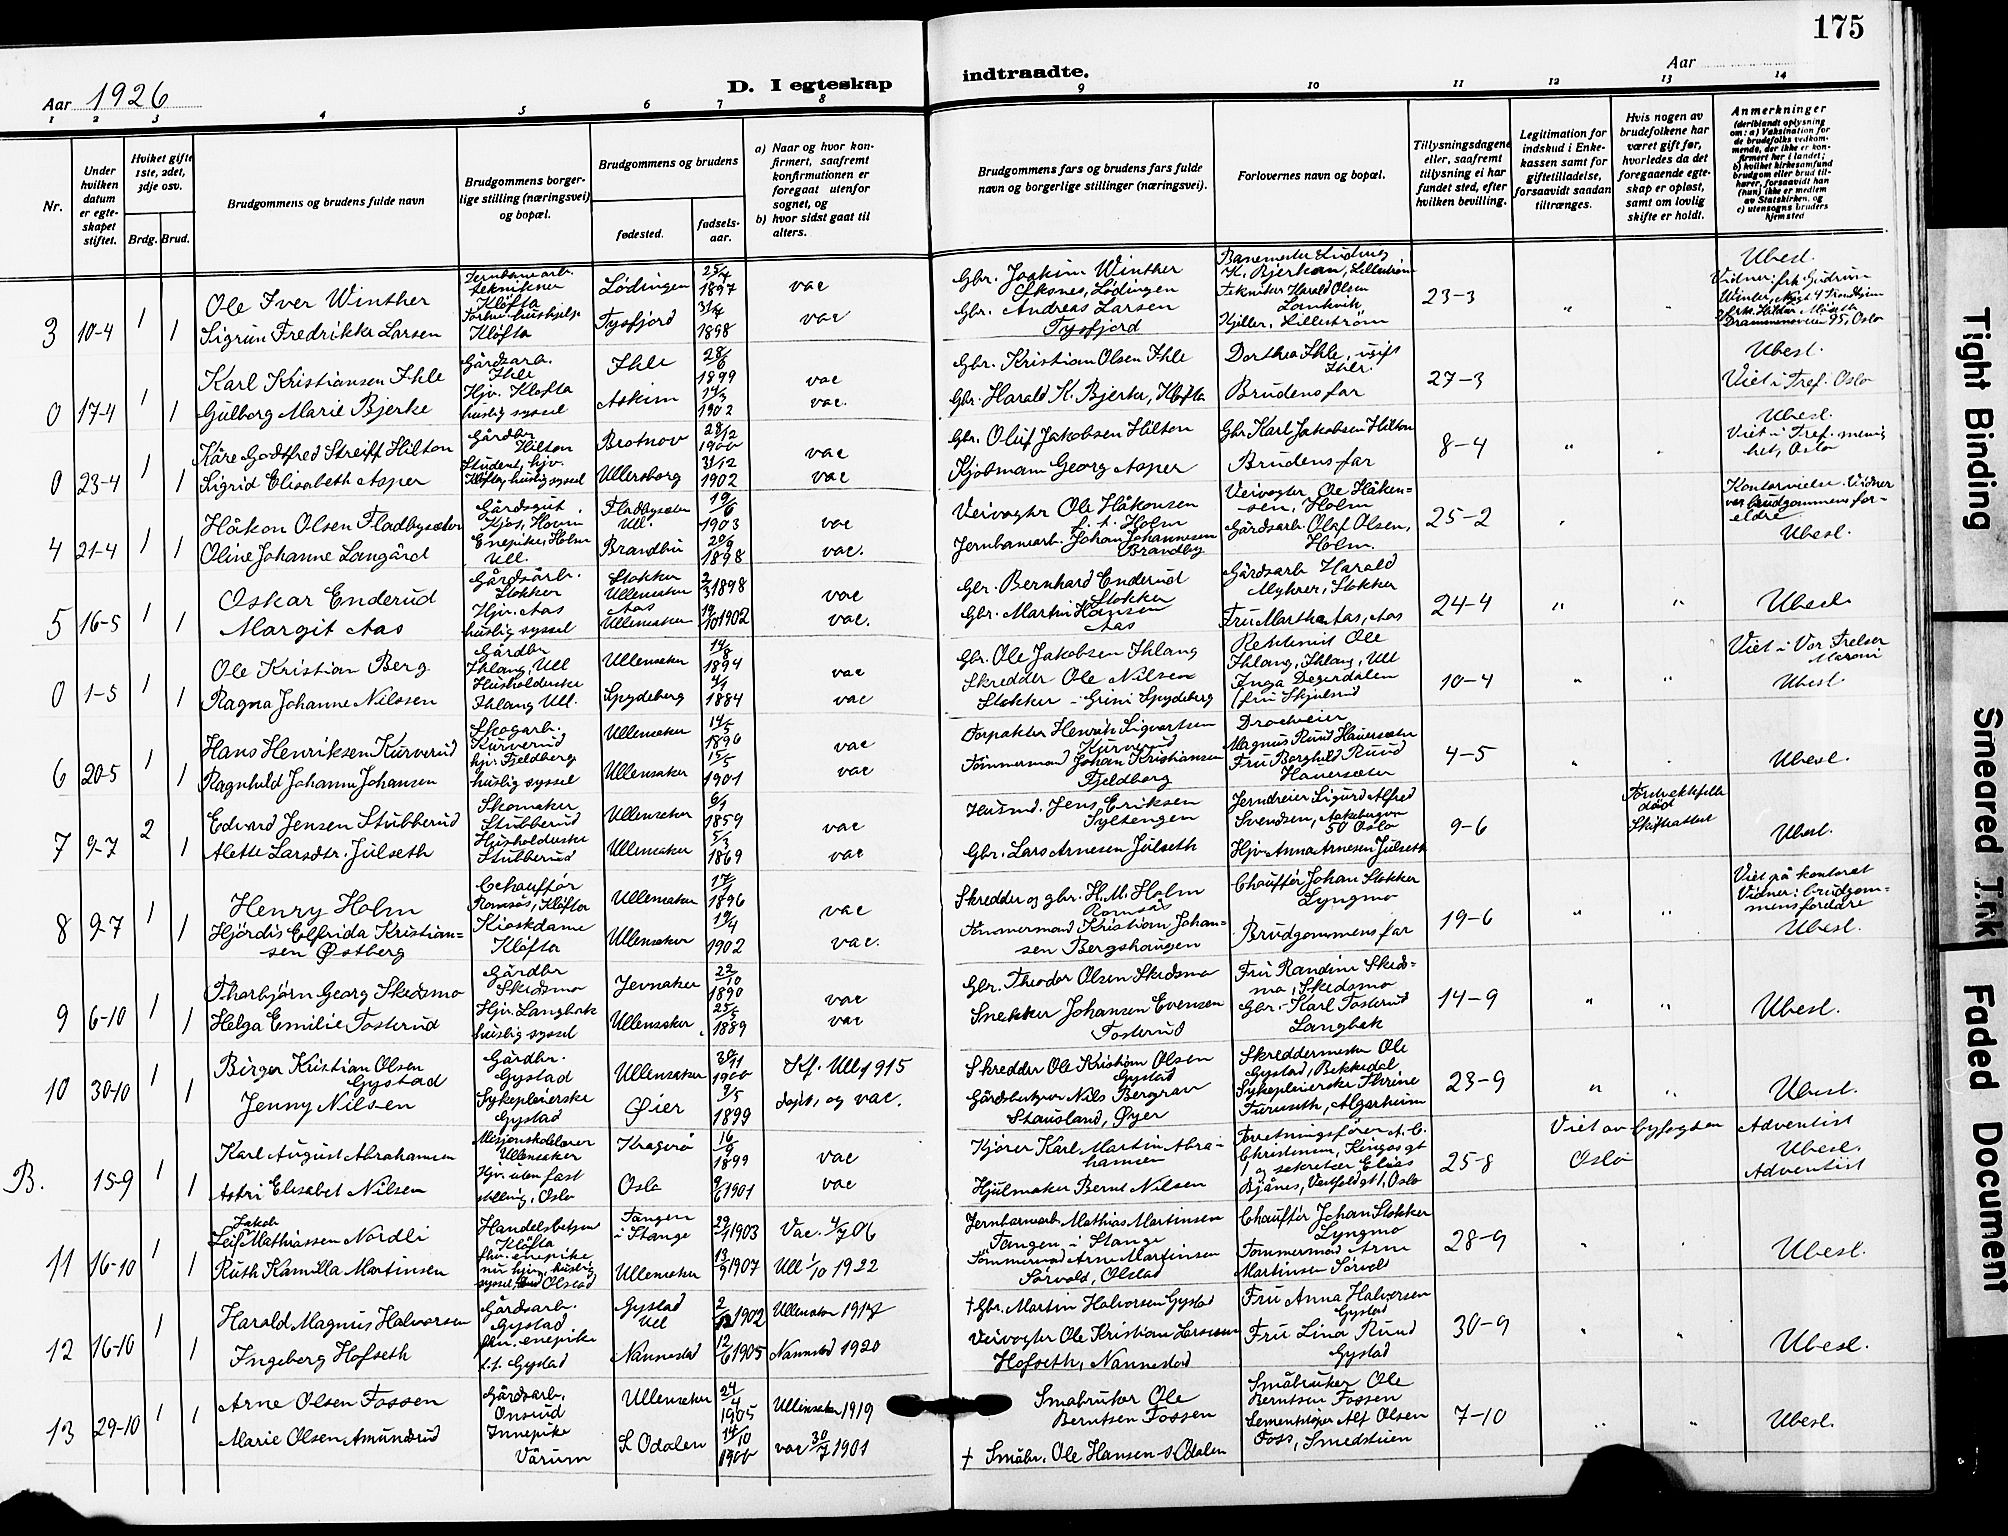 175
Aar 1926
D. I egteskap
indtraadte.
Aar
1 2 3 4 5 6 7 8 9 10 11 12 13 14
Nr.
Under hvilken datum er egteskapet stiftet.
Hviket gifte 1ste, 2det, 3dje osv.
Brdg. Brud.
Brudgommens og brudens fulde navn
Brudgommens borgerlige stilling (næringsvei) og bopæl.
Brudgommens og brudens
fødested.
fødselsaar.
a) Naar og hvor konfirmert, saafremt konfirmationen er foregaat utenfor sognet, og
b) hvor sidst gaat til alters.
Brudgommens fars og brudens fars fulde navn og borgerlige stillinger (næringsvei).
Forlovernes navn og bopæl.
Tillysningsdagene eller, saafremt tillysning ei har fundet sted, efter hvilken bevilling.
Legitimation for indskud i Enkekassen samt for giftetilladelse, forsaavidt saadan tiltrænges.
Hvis nogen av brudefolkene har været gift før, hvorledes da det foregaaende egteskap er opløst, samt om lovlig skifte er holdt.
Anmerkninger
(deriblandt oplysning om: a) Vaksination for de brudefolks vedkommende, der ikke er konfirmert her i landet; b) hvilket kirkesamfund brudgom eller brud tilhører, forsaavidt han (hun) ikke er medlem av Statskirken, og c) utensogns bruders hjemsted
3 10-4 1 1
Ole Iver Winther
Sigrun Fredrikke Larsen
Jernbanearb. tekniker
Kløfta
Kløfta
Lødingen 25/4 1897 vac
Tysfjord 31/ 1898 vac
Gbr. Joakim Winther
Øksnes, Lødingen
Gbr. Andreas Larsen
Tysfjord
Banemester Ludvig
K. Bjerkan, Lillestrøm
Tekniker Harald Olsen
Kjeller, Lillestrøm
23-3 " "
Ubesl.
Vidner: frk. Gudrun
Drammensveien 95, Oslo
0 17-4 1 1
Karl Kristiansen Ihle
Gulborg Marie Bjerke
Gårdsarb.
Ihle
Hjv. Kløfta
huslig syssel
Ihle 28/6 1899 vac
Askim 14/3 1902 vac.
Gbr. Kristian Olsen Ihle
Gbr. Harald K. Bjerke, Kløfta
Dorthea Ihle, ugift
Ihle.
Brudens far
27-3
Ubesl.
Viet i Tref. Oslo
0 23-4 1 1
Kåre Godtfred Streiff Hilton
Sigrid Elisabeth Asper
Gårdbr.
Hilton
Student, hjv.
Kløfta, huslig syssel
Brotnov 28/12 1900 vac
Ullersborg 31/12 1902 vac
Gbr. Oluf Jakobsen Hilton
Kjøbmann Georg Asper
Gbr. Karl Jakobsen Hilton
Brudens far
8-4 "
Ubesl.
Viet i Tref. menighet, Oslo
4 21-4 1 1
Håkon Olsen Fladbysæter
Oline Johanne Langård
Gårdsgut.
Enepike, Holm
Ull.
Fladbysæter
Ull. 19/6 1903 vac
Brandbu 20/9 1898 vac.
Veivogter Ole Håkonsen
f. t. Holm
Jernbanearb. Johan Johannesen
Brandby
Veivogter Ole Håkonsen, Holm
Gårdsarb. Olaf Olsen,
Holm.
25-2 "
Kontorvielse. Vidner
var brudgommens foreldre
Ubesl.
5 16-5 1 1
Oskar Enderud
Margit Aas
Gårdsarb.
Stokker
Hjv. Aas
huslig syssel
Stokker
Ullensaker 2/3 1898 vac
Aas
Ullensaker 19/10 1902 vac.
Gbr. Bernhard Enderud
Stokker
Gbr. Martin Hansen
Aas
Gårdsarb Harald
Myhrer, Stokker
Fru Martha Aas, Aas
24-4 " "
Ubesl.
0 1-5 1 1
Ole Kristian Berg
Ragna Johanne Nilssen
Gårdbr
Ihlang, Ull
Husholderske
Ihlang Ull.
Ullensaker 14/8 1894 vac
Spydeberg 4/1 1884 vac
Gbr. Ole Jakobsen Ihlang
Skredder Ole Nilsen
Stokker - Grini Spydeberg
Ole
Ihlang, Ihlang, Ull
Inga Degerdalen
10-4 " "
Viet i Vor Frelser
Ubesl.
6 20-5 1 1
Hans Henriksen Kurverud
Ragnhild Johanne Johansen
Skogarb.
Kurverud
hjv. Fjeldberg
huslig syssel
Ullensaker 14/5 1896 vac
Ullensaker 15/5 1901 vac
Forpakter Henrik Sigvartsen
Kurverud
Tømmermand Johan Kristiansen
Fjeldberg
Magnus Ruud Hauersæter
Fru Borghild Ruud
Hauersæter
4-5 " .
Ubesl.
7 2-7 2 1
Edvard Jensen Stubberud
Alette Larsdtr. Julseth
Skomaker
Stubberud
Husholderske
Stubberud
Ullensaker 6/1 1859 vac
Ullensaker 5/3 1869 vac
Husmd. Jens Eriksen
Syltengen
Gbr. Lars Arnesen Julseth
Jerndreier Sigurd Alfred
Svendsen, Aakebergvn
50 Oslo
Hjv. Anna Arnesen Julseth
9-6
død
Skifteattest
Ubesl.
8 2-7 1 1
Henry Holm
Hjördis Elfrida Kristiansen Østberg
Chauffør
Romsås, Kløfta
Kioskdame
Kløfta
Ullensaker 17/1 1896 vac
Ullensaker 19/4 1902 vac.
Skredder og gbr. H. M. Holm
Romsås
Tømmermand Kristian Johansen Bergshaugen
Chauffør Johan Stokker
Lyngmo
Brudgommens far
19-6 " "
Viet på kontoret
Vidner: brudgommens foreldre
Ubesl.
9 6-10 1 1
Thorbjørn Georg Skedsmo
Helga Emilie Fosterud
Gårdbr
Skedsmo
Hjv. Langbak
huslig syssel
Jevnaker 22/10 1890 vac
Ullensaker. 25/5 1889 vac
Gbr. Theodor Olsen Skedsmo
Snekker Johansen Evensen
Fosterud
Fru Randine Skedsmo, Skedsmo
Gbr. Karl Fosterud
Langbak
14-9 " "
Ubesl.
10 30-10 1 1
Birger Kristian Olsen
Gystad
Jenny Nilsen
Gårdbr.
Gystad
Sykepleierske
Gystad
Ullensaker 30/11 1900 Kf. Ull 1915
Øier 9/5 1899 døpt, og vac.
Skredder Ole Kristian Olsen
Gystad
Gårdsbestyrer Nils Bergvar
Stausland, Øyer
Skreddermester Ole
Gystad, Bekkedal
Sykepleierske Thrine
Furuseth, Algarheim
23-9 " "
Ubesl.
B. 15-9 1 1
Karl August Abrahamsen
Astri Elisabet Nilsen
Misjonskolelærer
Ullensaker
Hjv. uten fast
stilling, Oslo
Kragerø 16/9 1899 vac
Oslo 9/6 1901 vac
Kjører Karl Martin Abrahamsen
Hjulmaker Bernt Nilsen
Forretningsfører A. C.
Christensen, Kingosgt
1 og sekretær Elias
Bjånes, Vestfoldgt 1, Oslo
25-8
Viet av byfogden
Oslo
Adventist
Ubesl.
Adventist
11 16-10 1 1
Jakob
Leif Mathiassen Nordli
Ruth Kamilla Martinsen
Handelsbetjen
Kløfta
fhv. enepike
nu hjv, huslig
syssel, Olstad
Tangen
i Stange 29/1 1903 Vac. 4/7 06
Ullensaker 13/9 1907 Ull 1/10 1922
Jernbanearb. Mathias Martinsen
Tangen i Stange
Tømmermand Arne Martinsen
Sørvold, Olstad
Chauffør Johan Stokker
Lyngmo
Tømmermand Arne
Martinsen Sørvold
28-9
Ubesl.
12 16-10 1 1
Harald Magnus Halvorsen
Ingeborg Hofseth
Gårdsarb.
Gystad
fhv. enepike
f.t. Gystad
Gystad
Ull 2/12 1902 Ullensaker 1917
Nannestad 12/6 1905 Nannestad 1920
† Gbr. Martin Halvorsen Gystad
Veivogter Ole Kristian Larssen
Hofseth, Nannestad
Fru Anna Halvorsen
Gystad
Fru Lina Ruud
Gystad
30-9 " "
Ubesl.
13 29-10 1 1
Arne Olsen Fossen
Marie Olsen Amundrud
Gårdsarb.
Onsrud
Innepike
Vårum
Ullensaker 24/4 1905 Ullensaker 1919
S. Odalen 14/10 1900 vac 30/7 1901
Småbruker Ole
Berntsen Fossen
† Småbr. Ole Hansen S. Odalen
Småbruker Ole
Berntsen Fossen
Sementstøper Alf Olsen
Foss, Smedstuen
7-10 " "
Ubesl.
Tight Binding
Smeared Ink
Faded Document